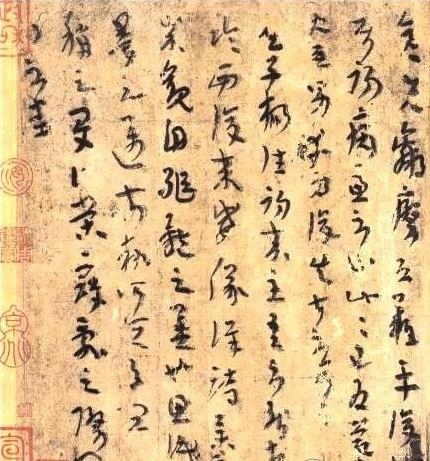 彦先羸瘵恐難平復
初病慮不止此此已為慶
使唯男幸為復失前憂耳
子楊往初來主吾不能
臨西復來威儀詳跱舉
成觀自軀體之美也思識
量之邁前執所恒有宜
稱之夏伯榮寇亂之際
問不悉